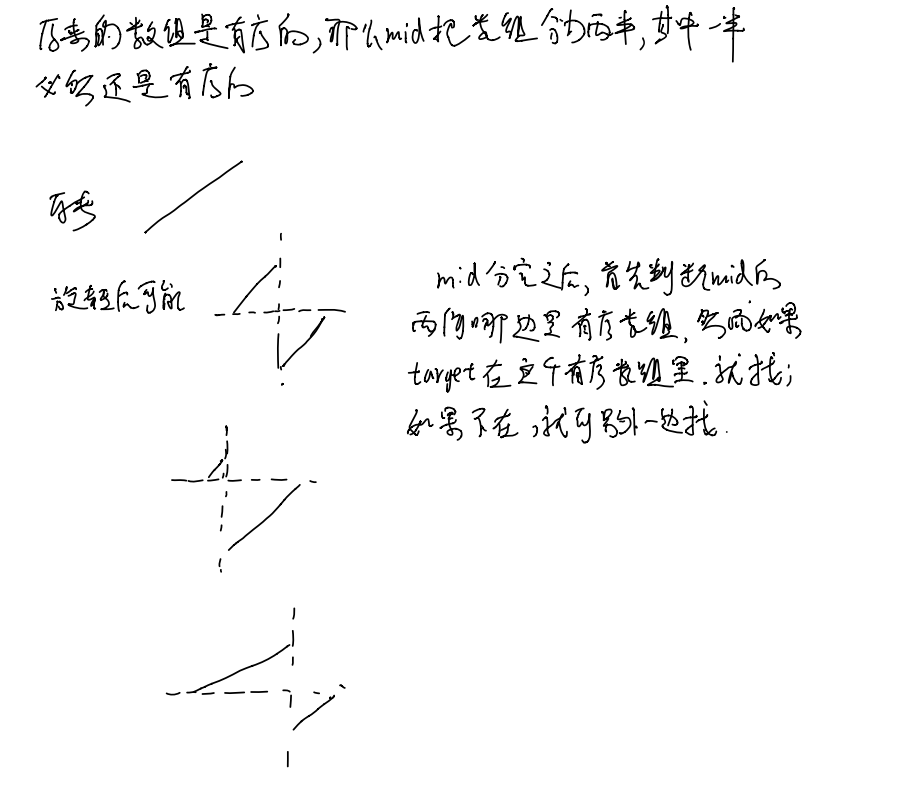 原来的数组是有序的,那么mid把数组分为两半,其中一半
必然还是有序的
原来
旋转后可能
mid分完之后,首先判断mid的
两侧哪边是有序数组,然而如果
target在这个有序数组里.就找;
如果不在,就到另外一边找.